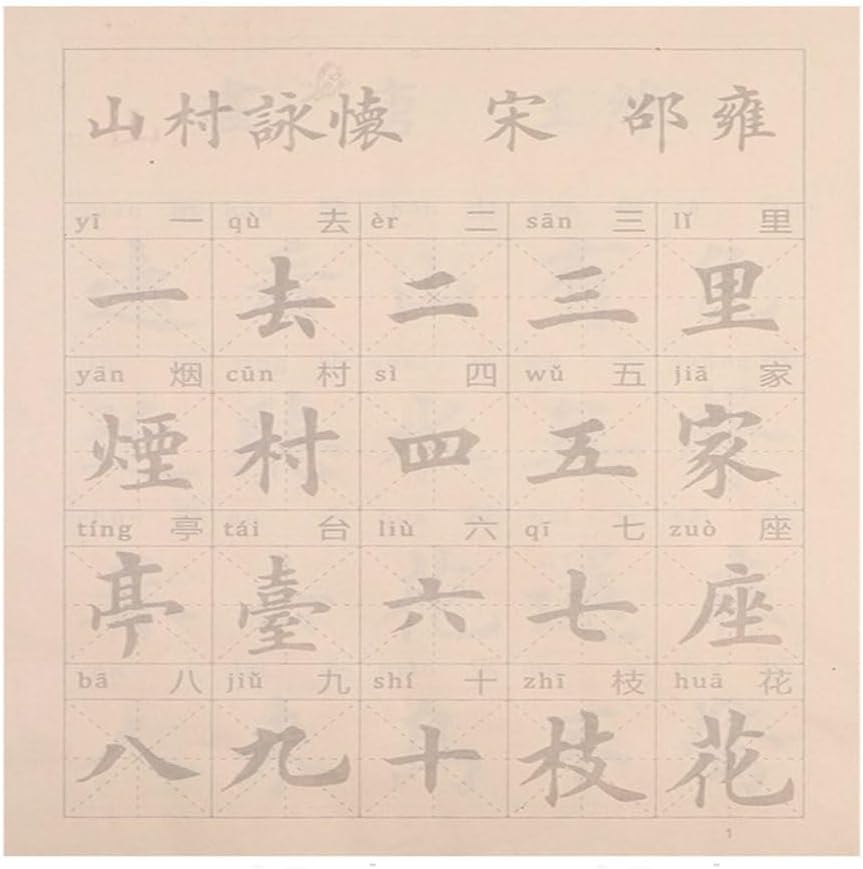 山村詠懷 宋 邵雍
yī 一 qù 去 èr 二 sān 三 lǐ 里
一 去 二 三 里
yān 烟 cūn 村 sì 四 wǔ 五 jiā 家
煙 村 四 五 家
tíng 亭 tái 台 liù 六 qī 七 zuò 座
亭 臺 六 七 座
bā 八 jiǔ 九 shí 十 zhī 枝 huā 花
八 九 十 枝 花
1